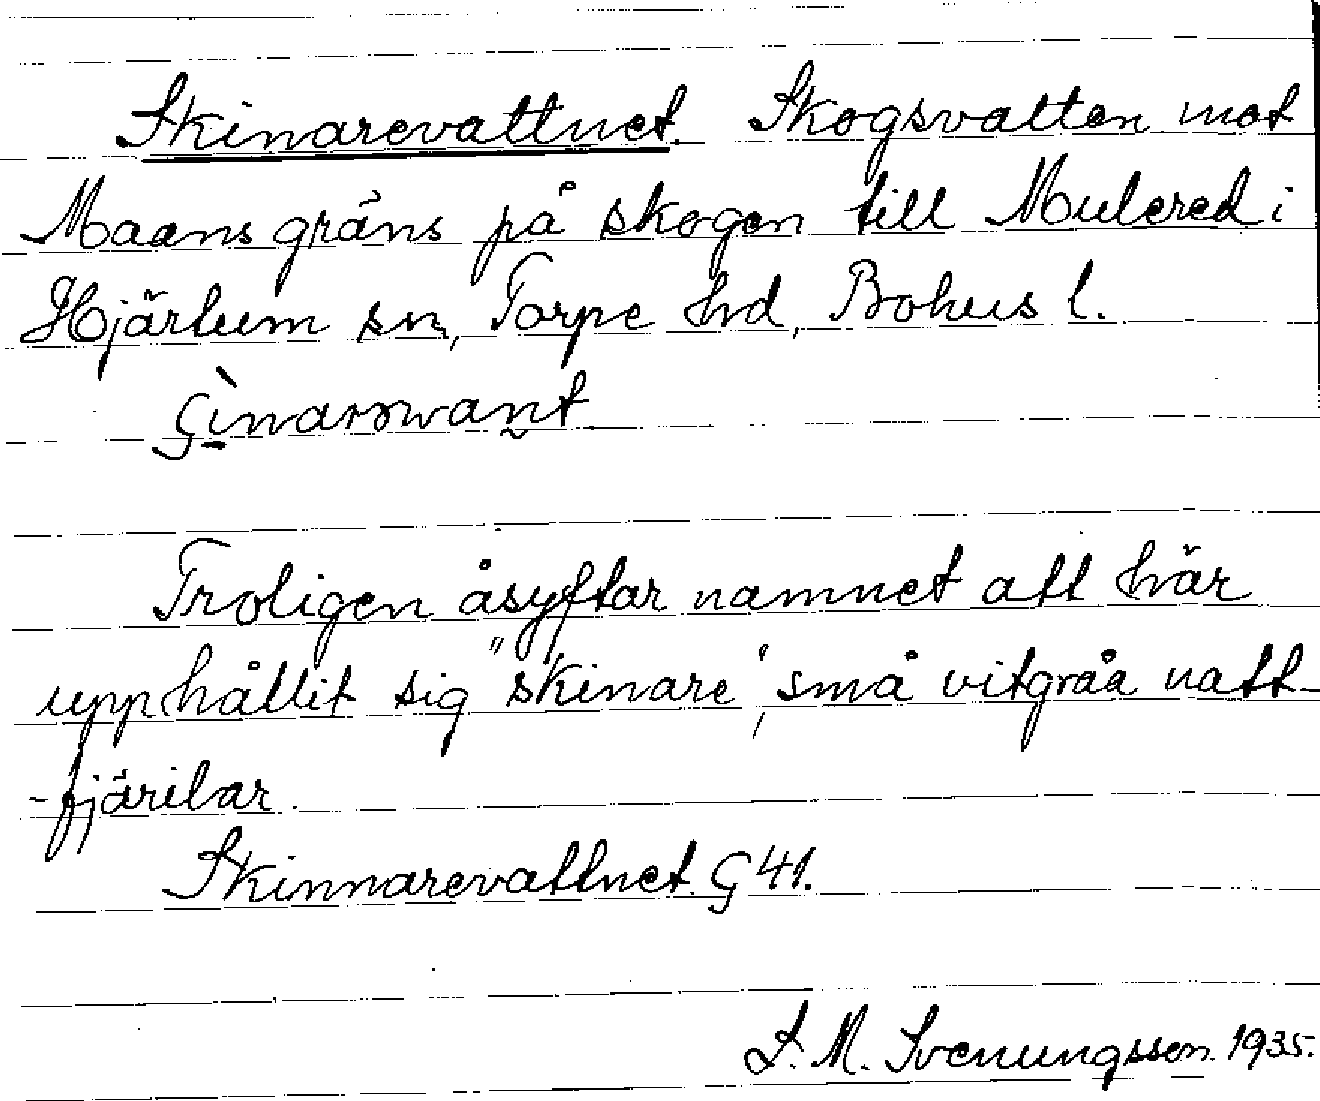 Skinarevattnet. Skogsvatten mot
Maans gräns på skogen till Mulered i
Hjärtum sn, Torpe hd, Bohus l.
Troligen åsyftar namnet att här
upphållit sig "skinare", små vitgråa natt-
-fjärilar.
Skinnarevattnet. G 41.
S. M. Svenungsson. 1935.